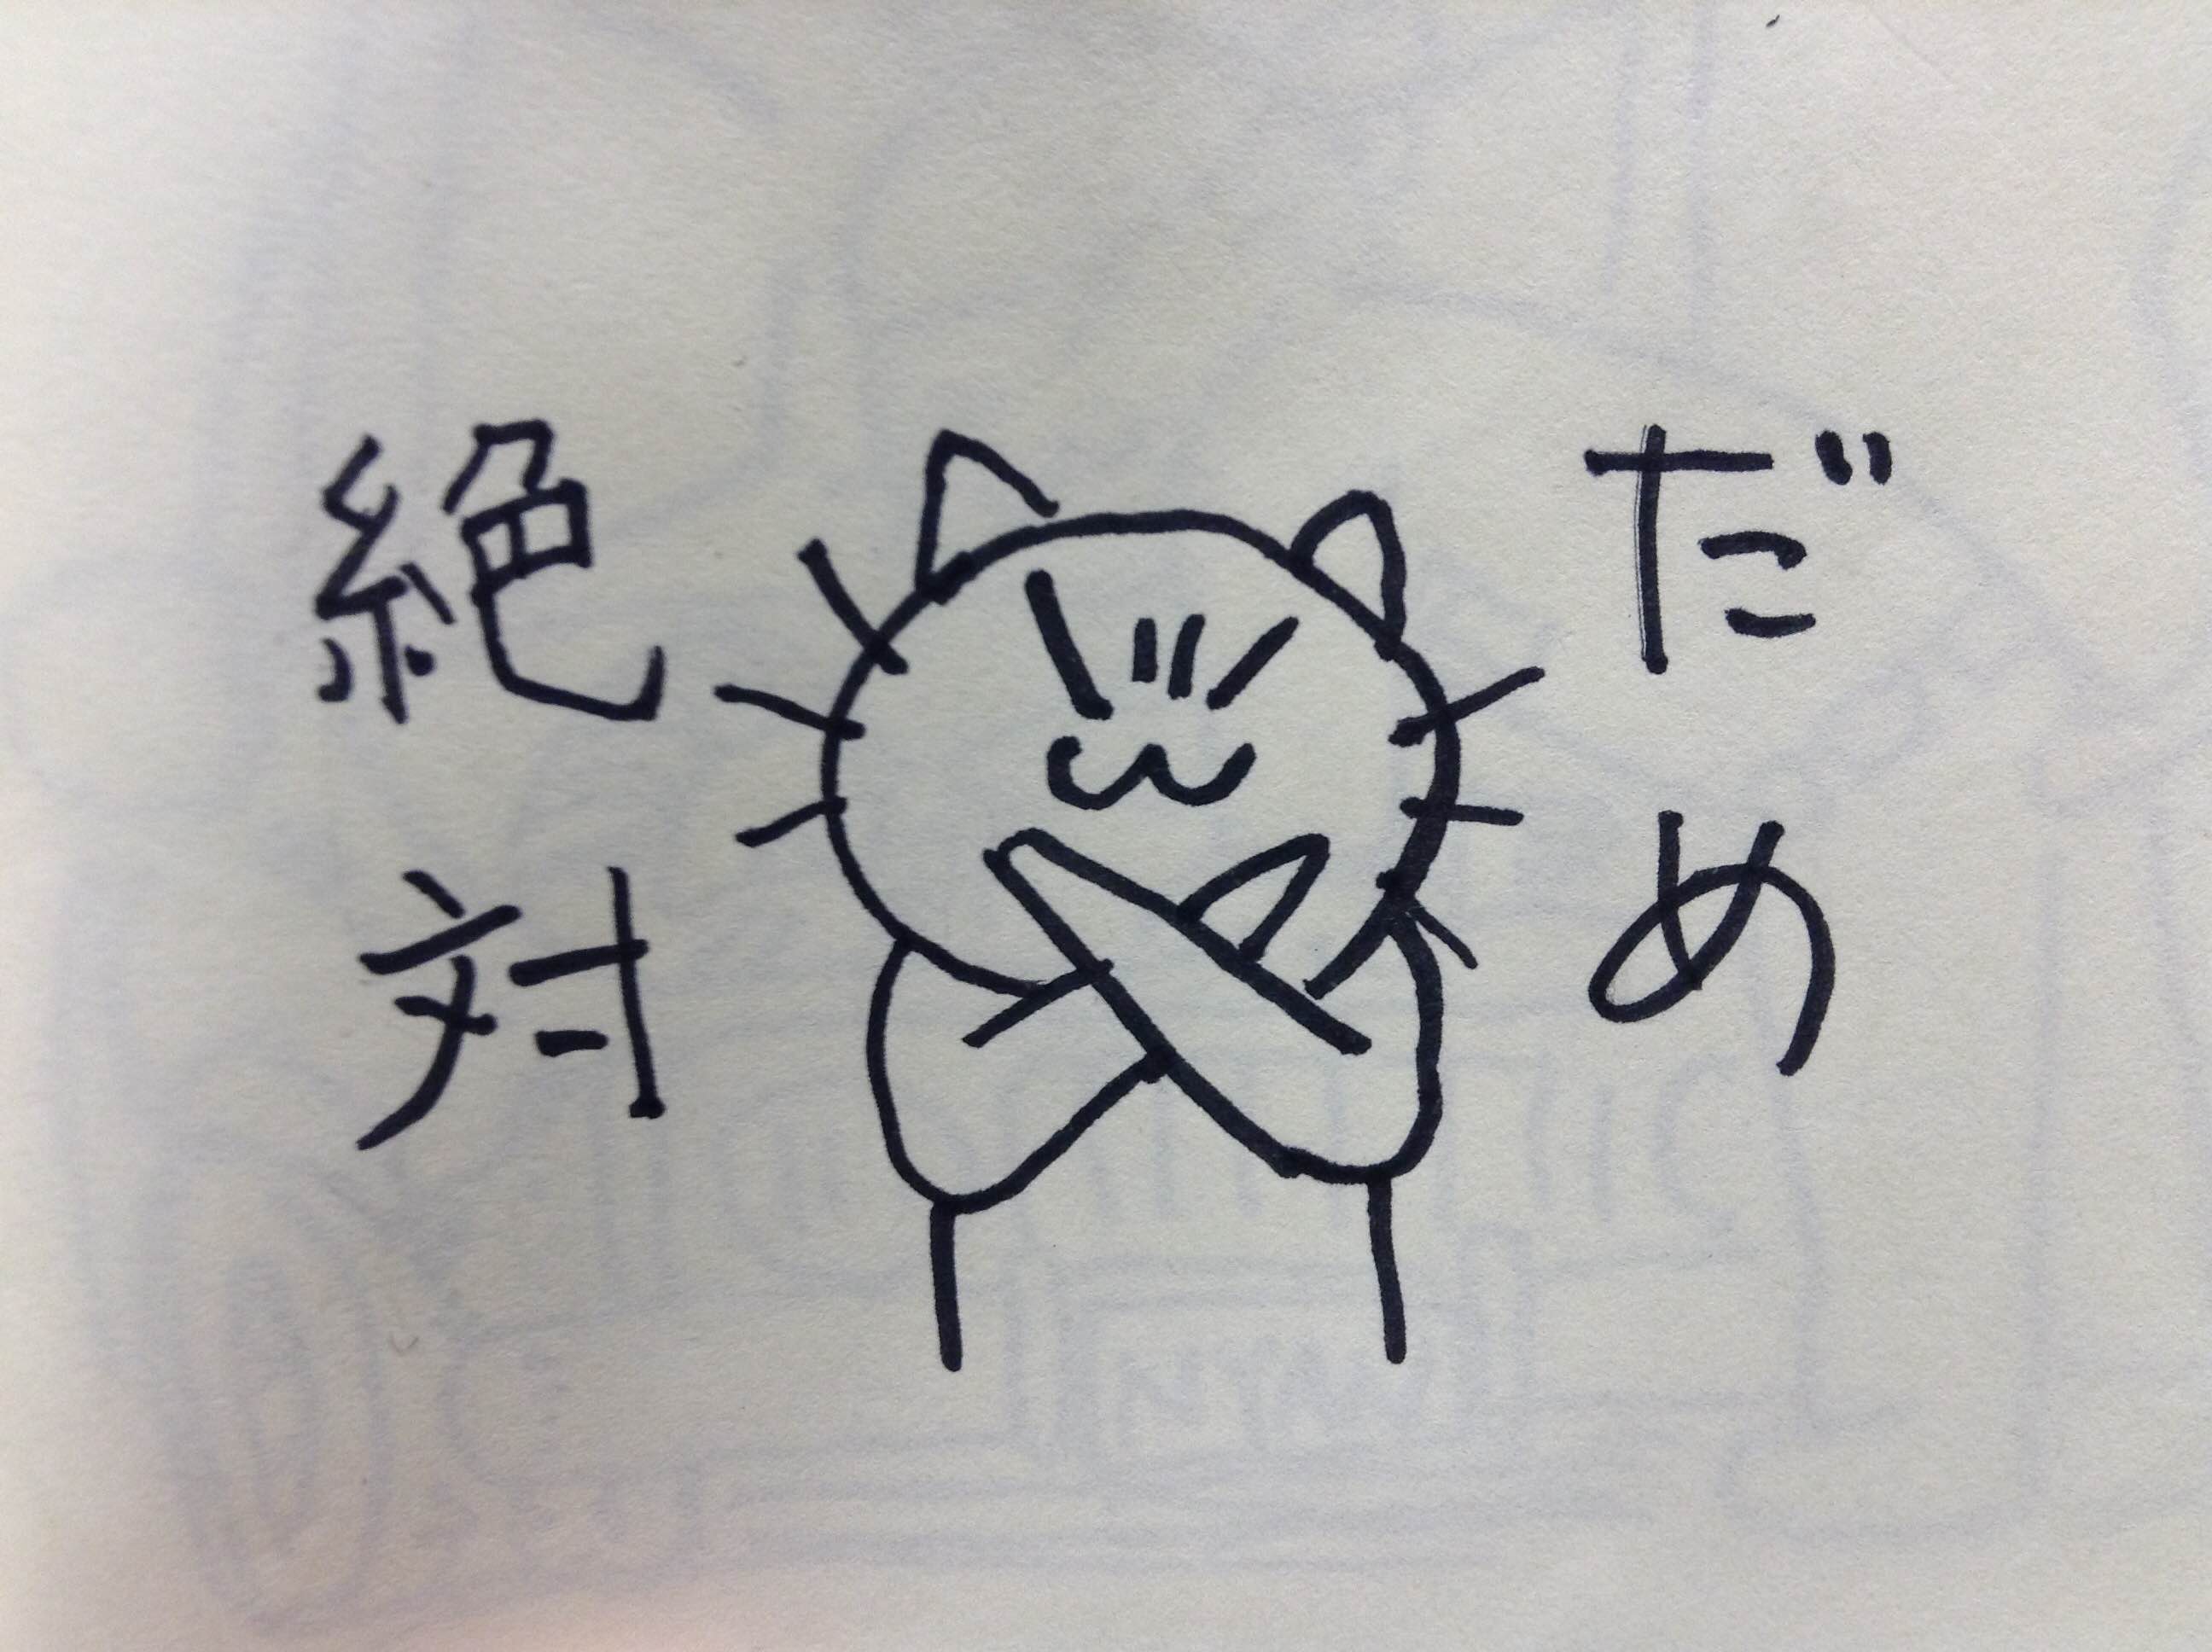 絶対
だめ